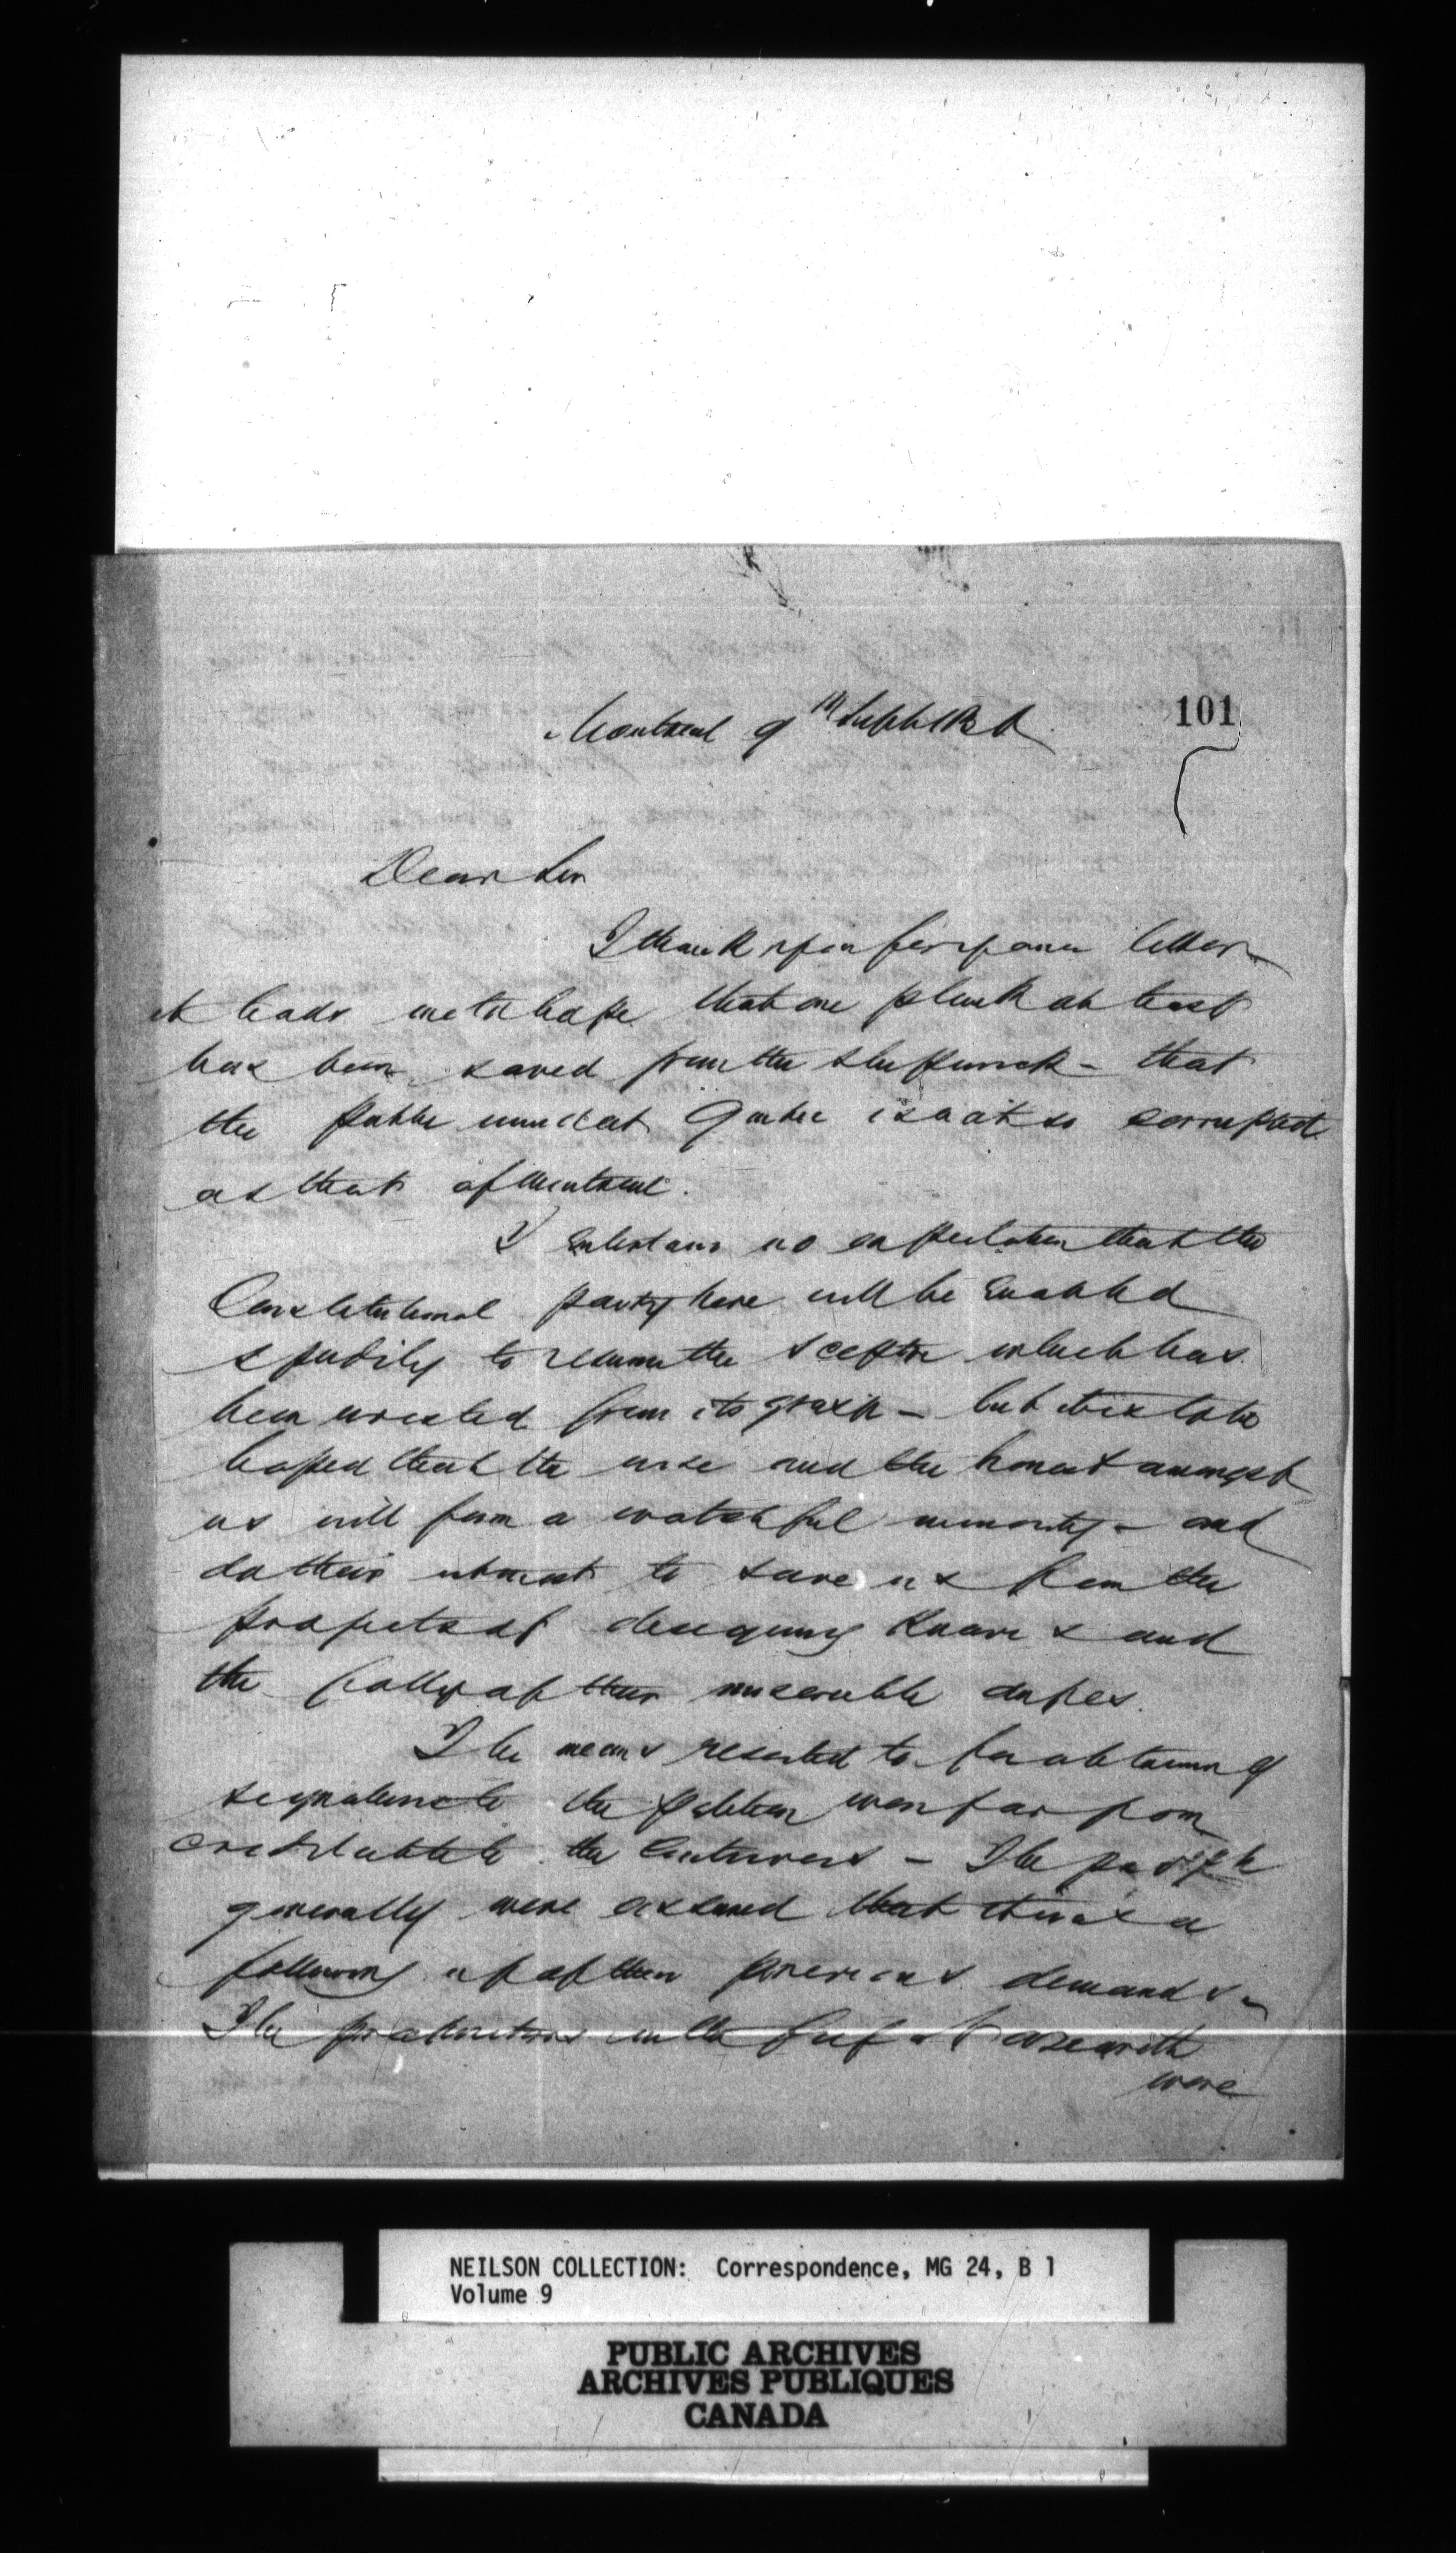 101
Montreal 9th Septr
Dear Sir
I thank you for your letter
it leads me to hope that one plank at least
has been saved from the shipwreck – that
the public mind at Quebec is not so corrupted
as that of Montreal.
I entertain no expectation that the
Constitutional party here will be enabled
speedily to resume the sceptre which has
been wrested from its grasp – but it is to be
hoped that the wise and the honest amongst
us will form a watchful minority – and
do their utmost to save us from the
projects of designing knaves and
the folly of their miserable dupes.
The means resorted to for obtaining
signatures to the petition were far from
creditable to the – The people
generally were assured that this was a
following up of their previous demands –
The in the
were
NEILSON COLLECTION: Correspondence, MG 24, B 1
Volume 9
PUBLIC ARCHIVES
ARCHIVES PUBLIQUES
CANADA